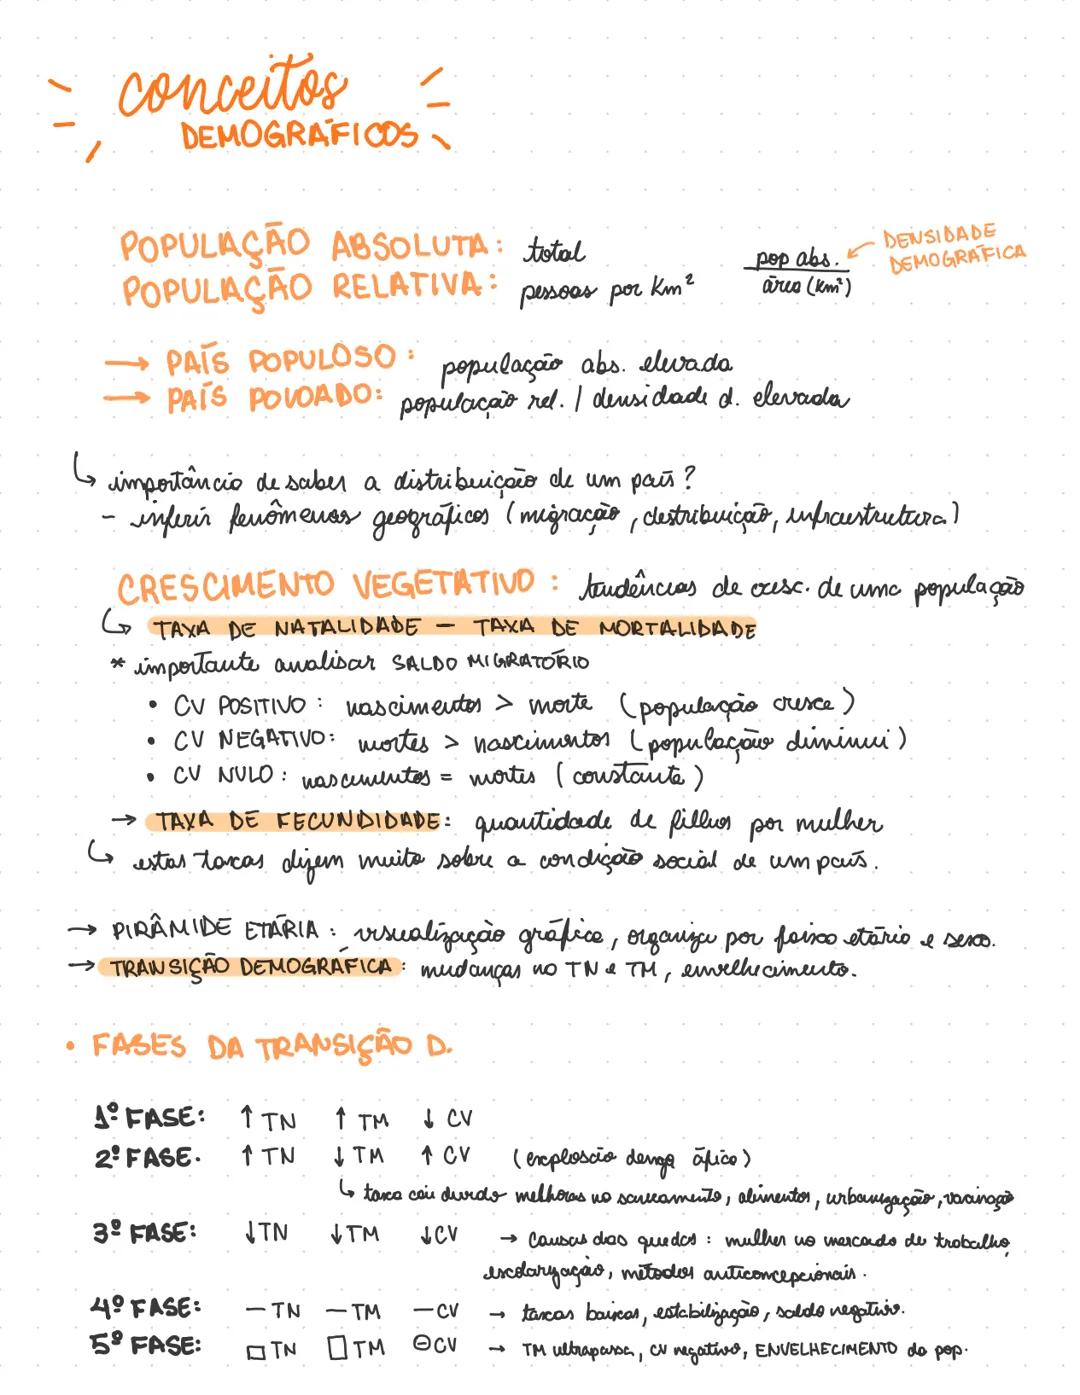 conceitos
DEMOGRÁFICOS
POPULAÇÃO ABSOLUTA: total
POPULAÇÃO RELATIVA: pessoas por Km²
pop abs.
área (km²)
DENSIDADE
DEMOGRÁFICA
→ PAÍS POPULOSO: população abs. elevada
→ PAÍS POVOADO: população rel. / densidade d. elevada
↳ importância de saber a distribuição de um país?
- inferir fenômenos geográficos (migração, destribuição, infraestrutura)
CRESCIMENTO VEGETATIVO: tendências de cresc. de uma população
↳ TAXA DE NATALIDADE - TAXA DE MORTALIDADE
* importante analisar SALDO MIGRATÓRIO
• CV POSITIVO: nascimentos > morte (população cresce)
• CV NEGATIVO: mortes > nascimentos (população diminui)
• CV NULO: nascimentos = mortes (constante)
→ TAXA DE FECUNDIDADE: quantidade de filhos por mulher
↳ estas taxas dizem muito sobre a condição social de um país.
→ PIRÂMIDE ETÁRIA: visualização gráfica, organiza por faixa etária e sexo.
→ TRANSIÇÃO DEMOGRÁFICA: mudanças no TN e TM, envelhecimento.
• FASES DA TRANSIÇÃO D.
1º FASE: ↑ TN ↑ TM ↓ CV
2º FASE. ↑ TN ↓ TM ↑ CV (explosão)
↳ taxa cai melhoras no saneamento, alimentos, urbanização, vacinação
3º FASE: ↓TN ↓TM ↓CV → Causas das quedas: mulher no mercado de trabalho,
escolarização, métodos anticoncepcionais.
4º FASE: —TN —TM —CV → taxas baixas, estabilização, saldo negativo.
5º FASE: □TN □TM ⊖CV → TM ultrapassa, CV negativo, ENVELHECIMENTO da pop.